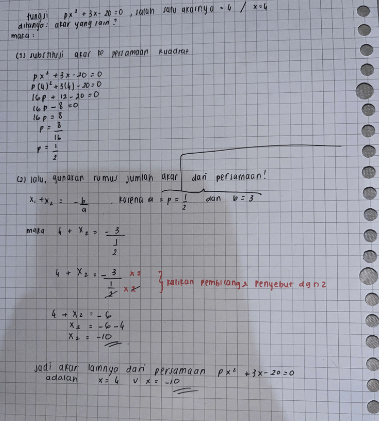 fungsi px² + 3x - 20 = 0, salah satu akarnya = 4 / x = 4
ditanya: akar yang lain?
maka:
(1) substitusi akar ke persamaan kuadrat
px² + 3x - 20 = 0
p(4)² + 3(4) - 20 = 0
16p + 12 - 20 = 0
16p - 8 = 0
16p = 8
p = 8/16
p = 1/2
(2) lalu, gunakan rumus jumlah akar dari persamaan!
x₁ + x₂ = -b/a karena a = p = 1/2 dan b = 3
maka 4 + x₂ = -3/(1/2)
4 + x₂ = -3/(1/2) x 2 x 2 } kalikan pembilang & penyebut dgn 2
4 + x₂ = -6
x₂ = -6 - 4
x₂ = -10
Jadi akar lainnya dari persamaan px² + 3x - 20 = 0
adalah x = 4 v x = -10